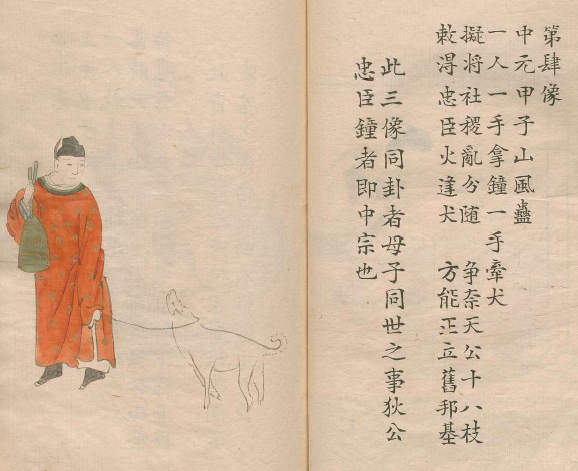 第肆像
中元甲子山風蠱
一人一手拿鐘一手牽犬
擬將社稷亂分隨　爭奈天公十八枝
敕得忠臣火逢犬　方能正立舊邦基
此三像同卦者母子同世之事狄公
忠臣鐘者即中宗也